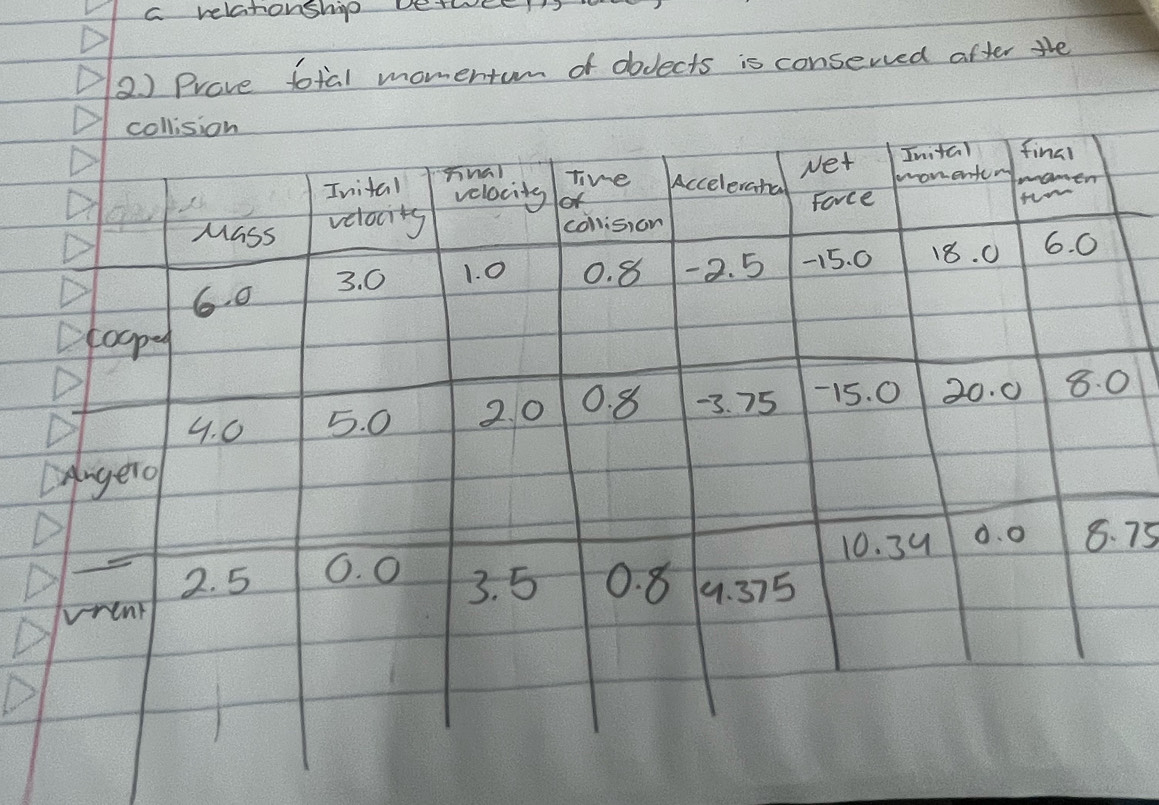 a relationship
2.) Prove total momentum of objects is conserved after the
collision
Mass Inital velocity Final velocity Time of collision Acceleration Net Force Inital momentum final momentum
Cooper 6.0 3.0 1.0 0.8 -2.5 -15.0 18.0 6.0
Angelo 4.0 5.0 2.0 0.8 -3.75 -15.0 20.0 8.0
2.5 0.0 3.5 0.8 4.375 10.34 0.0 8.75